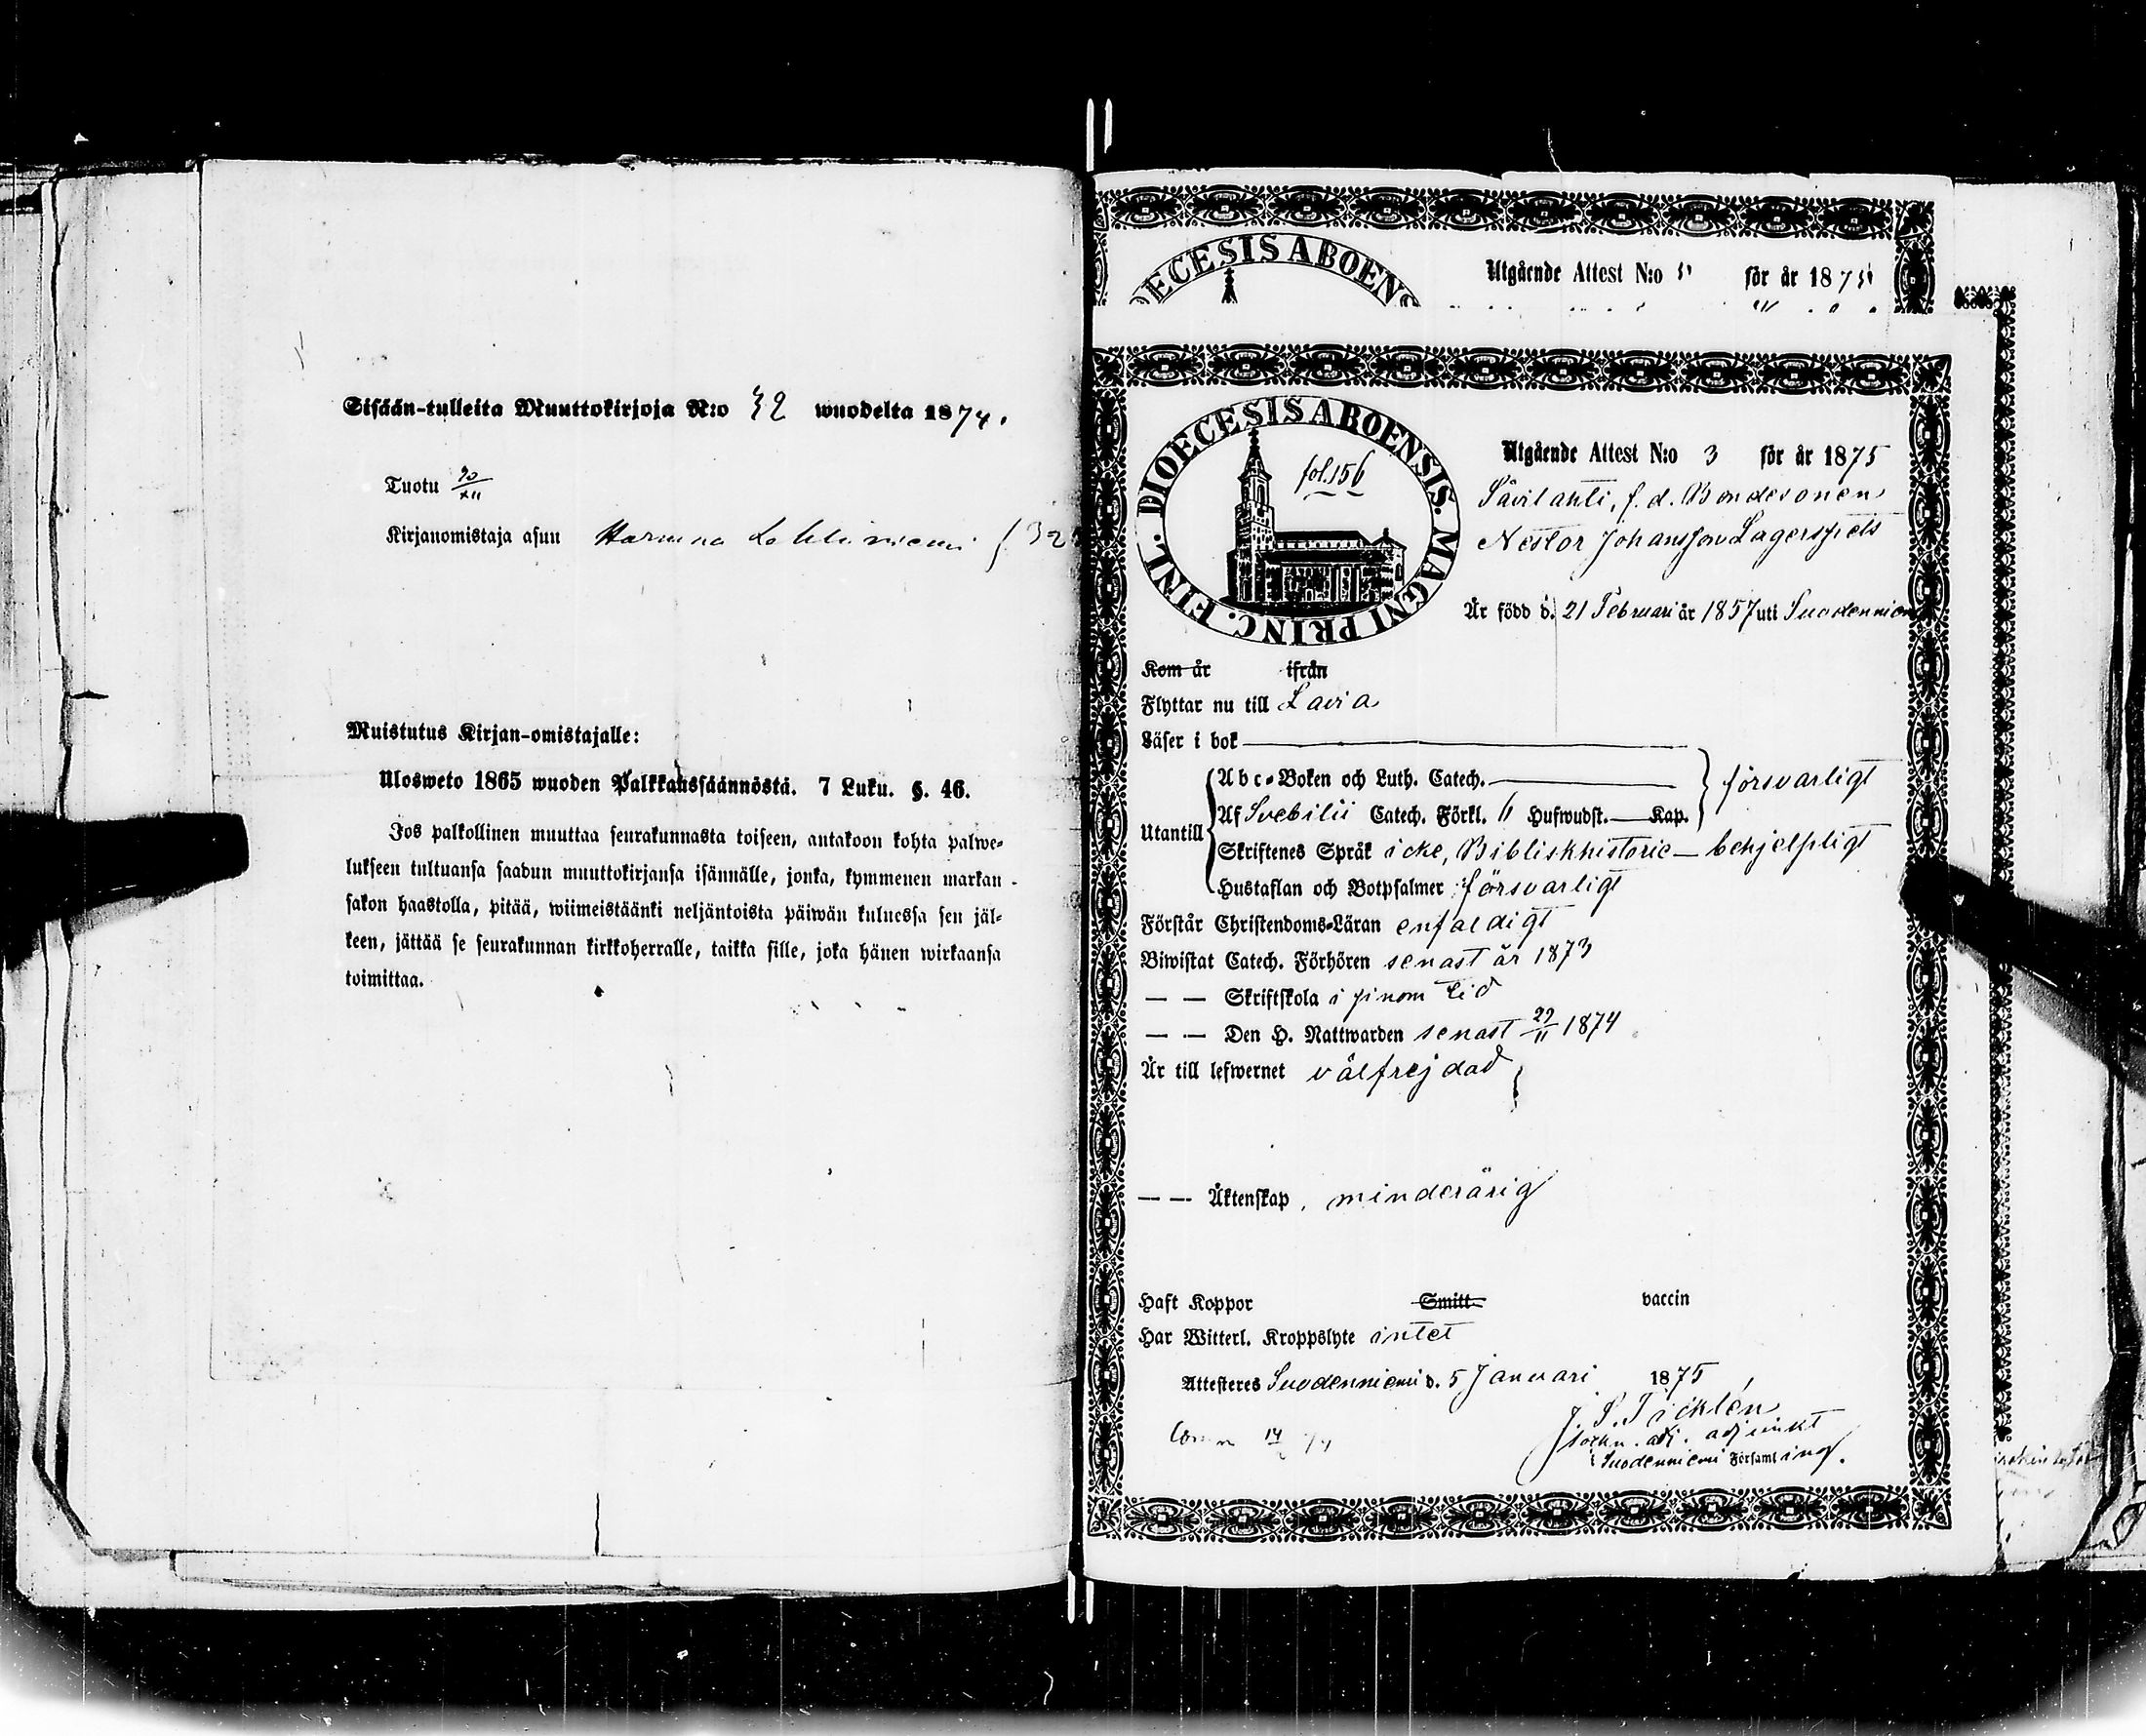 Sisään-tulleita Muuttokirjoja N:o 32 wuodelta 1874.
Tuotu 30/XII
Kirjanomistaja asuu
Muistutus Kirjan-omistajalle:
Ulosweto 1865 wuoden Palkkaussäännöstä. 7 Luku. §. 46.
Jos palkollinen muuttaa seurakunnasta toiseen, antakoon kohta palwe-
lukseen tultuansa saadun muuttokirjansa isännälle, jonka, kymmenen markan
sakon haastolla, pitää, wiimeistäänki neljäntoista päiwän kuluessa sen jäl-
keen, jättää se seurakunnan kirkkoherralle, taikka sille, joka hänen wirkaansa
toimittaa.
DIOECESIS ABOENS
Utgående Attest N:o för år 1875
DIOECESIS ABOENSIS. MAGNI PRINC. FINL.
fol. 156
Utgående Attest N:o 3 för år 1875
f. d. Bondesonen
Nestor Johansson Lagerspets
Är född d. 21 Februari år 1857 uti Suodenniemi
Kom år ifrån
Flyttar nu till Lavia
Läser i bok
Utantill
Abc-Boken och Luth. Catech. försvarligt
Af Svebilii Catech. Förkl. Hufwudst. Kap.
Skriftenes Språk icke, Bibliskhistorie - behjelpligt
Hustaflan och Botpsalmer försvarligt
Förstår Christendoms-Läran enfaldigt
Biwistat Catech. Förhören senast år 1873
— — Skriftskola i sinom tid
— — Den H. Nattwarden senast 29/11 1874
Är till lefwernet välfrejdad
— — Äktenskap, minderårig
Haft Koppor Smitt vaccin
Har Witterl. Kroppslyte intet
Attesteras Suodenniemi d. 5 Januari 1875
J. S. Täcklén
sockn. adj. adjunkt
i Suodenniemi Församling.